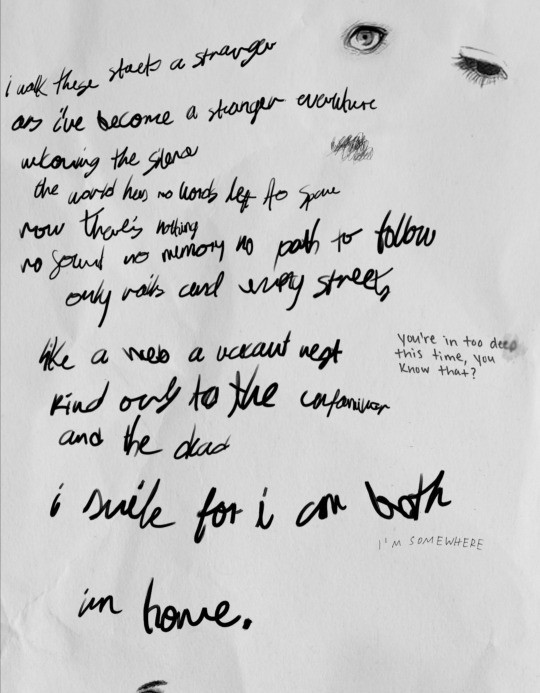 i walk these streets a stranger
as i've become a stranger everywhere
the silence
the world has no words left to spare
now there's nothing
no sound no memory no path to follow
only and empty streets
like a web a vacant nest
kind only to the unfamiliar
and the dead
i smile for i am both
im home.
you're in too deep
this time, you
know that?
I'M SOMEWHERE